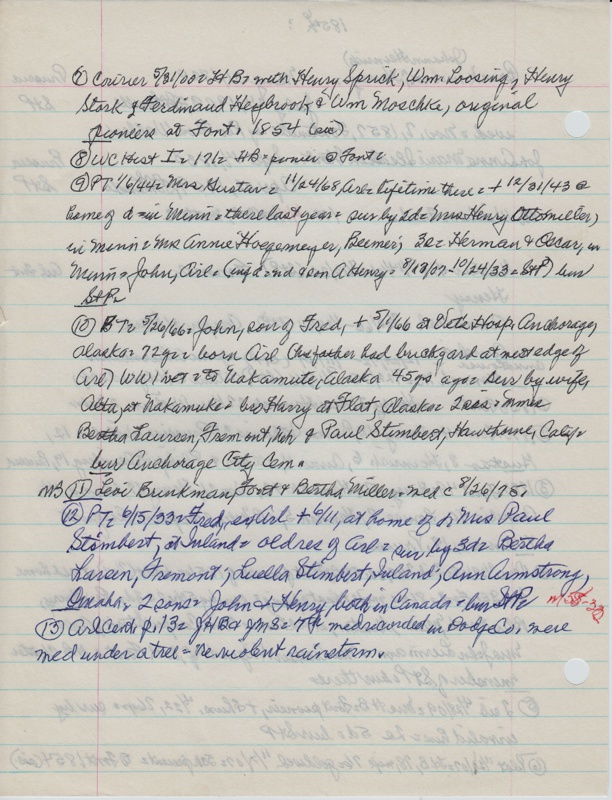 ⑦ Courier 5/31/00= H B= with Henry Sprick, Wm Loosing, Henry
Stork & Ferdinand Heybrook, & Wm Moschke, original
pioniers at Font, 1854 (sic)
⑧ WC Hist I= 171= HB= pionier @ Font=
⑨ PT 1/6/44= Mrs Gustav= 11/24/68, Arl= lifetime there= + 12/31/43 @
home of d= in Minn= there last year= sur by 2d= Mrs Henry Ottomiller,
in Minn= Mrs Annie Hoegemeyer, Beemer; 3s= Herman & Oscar, in
Minn= John, Arl= (inf d= nd & son A Henry= 8/18/07-10/24/33= StP) bur
StP=
⑩ BT= 5/26/66= John, son of Fred, + 5/1/66 at Vets Hosp, Anchorage,
Alaska= 72 yr= born Arl (his father had brickyard at west edge of
Arl) WW1 vet= to Nakamute, Alaska 45 yrs ago= sur by wife,
Alta, at Nakamuke= bro Harry at Flat, Alaska= 2 sis= Mmes
Bertha Laursen, Fremont, Neb & Paul Stimbert, Hawthorne, Calif=
bur Anchorage City Cem.
NB ⑪ Levi Brunkman, Font & Bertha Miller= med c 8/26/75.
⑫ PT= 6/15/33= Fred, ex Arl + 6/11, at home of d, Mrs Paul
Stimbert, at Inland= old res of Arl= sur by 3d= Bertha
Larsen, Fremont; Luella Stimbert, Inland; Ann Armstrong,
Omaha, 2 sons= John & Henry, both in Canada= bur StP=
⑬ Arl Cent, p. 13= JHB & JMS= 7th med recorded in Dodge Co, were
med under a tree= re violent rainstorm.